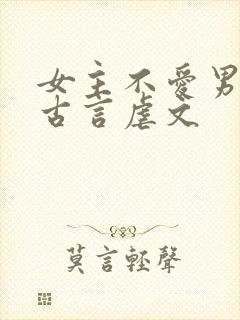 女主不愛男
古言虐文
莫言輕聲